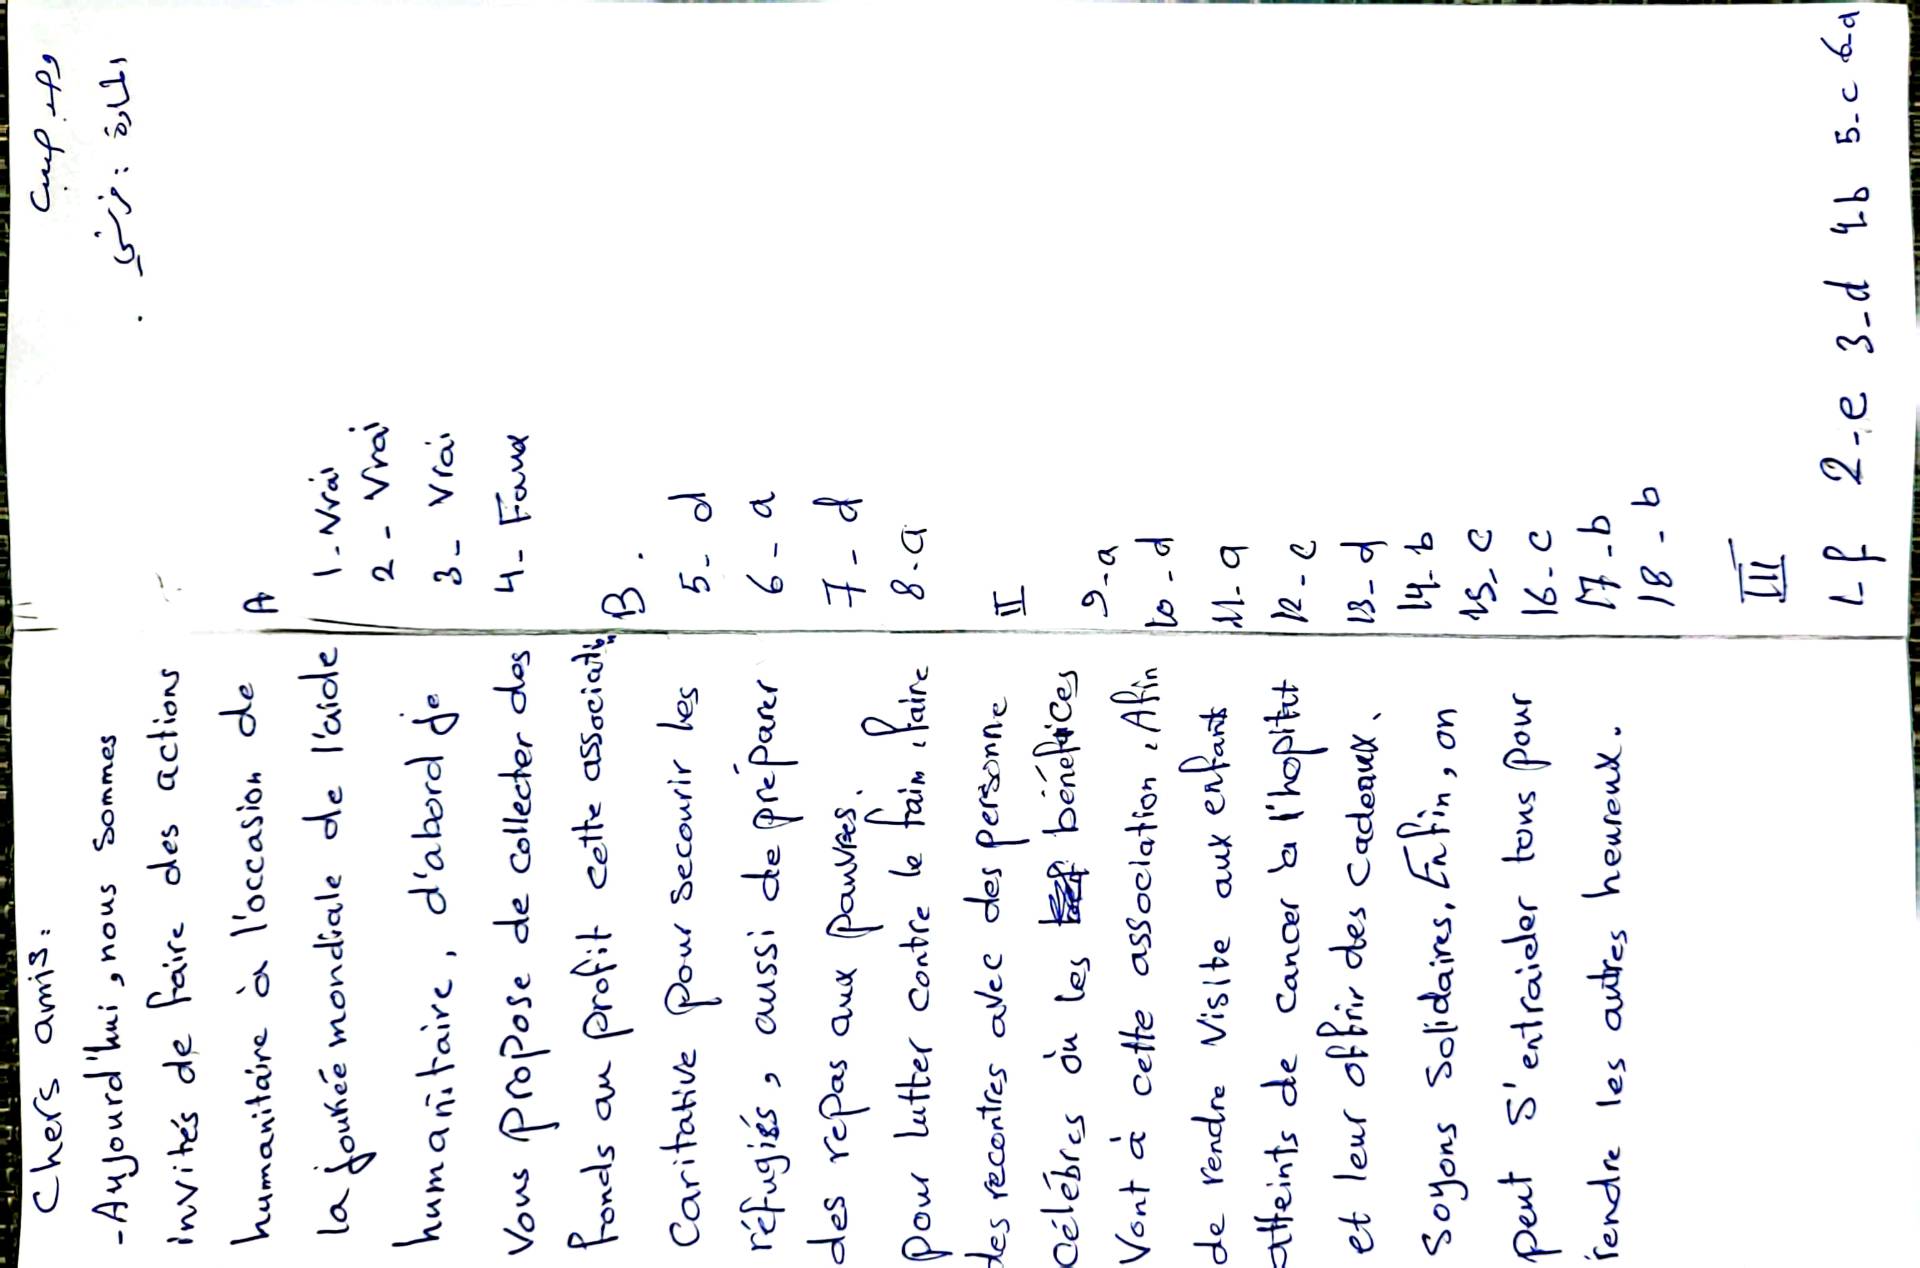 المادة : فرنسي
A
1 - Vrai
2 - Vrai
3 - Vrai
4 - Faux
B.
5 - d
6 - a
7 - d
8 - a
II
9 - a
10 - d
11 - a
12 - c
13 - d
14 - b
15 - c
16 - c
17 - b
18 - b
III
1-f 2-e 3-d 4-b 5-c 6-a
Chers amis:
-Aujourd'hui, nous sommes
invités de faire des actions
humanitaire à l'occasion de
la jounée mondiale de l'aide
humanitaire, d'abord je
Vous propose de collecter des
fonds au profit cette association
Caritative pour secourir les
réfugiés, aussi de préparer
des repas aux pauvres.
pour lutter contre le faim, faire
des recontres avec des personne
célèbres où les bénéfices
Vont à cette association. Afin
de rendre visite aux enfants
atteints de cancer à l'hopital
et leur offrir des cadeaux.
Soyons Solidaires. Enfin, on
peut s'entraider tous pour
rendre les autres heureux.